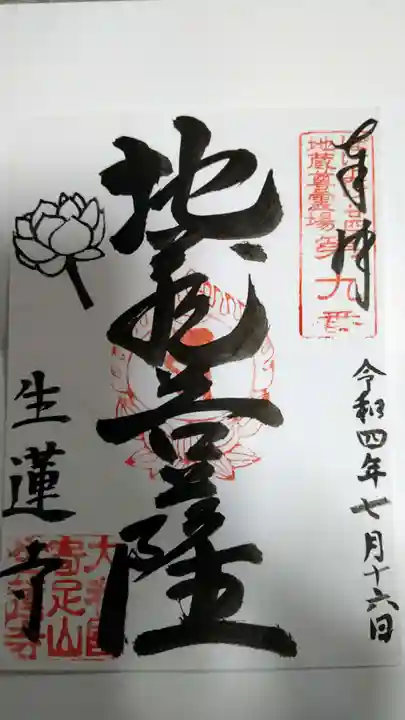 奉拝
地蔵尊霊場第九番
令和四年七月十六日
地蔵菩薩
生蓮寺
大和国
寄足山
生蓮寺